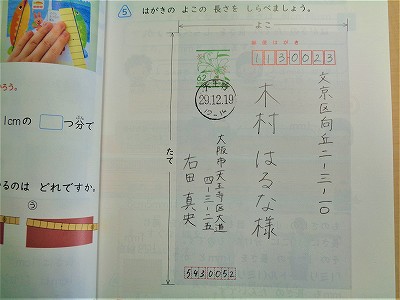 ⑤ はがきの よこの 長さを しらべましょう。
よこ
たて
62
郵便はがき
1130023
29.12.19
文京区向丘二-三-一〇
木村 はるな様
大阪市天王寺区大道
四-三-二五
右田 真史
5430052
ろう。
1cmの □つ分で
るのは どれですか。
③